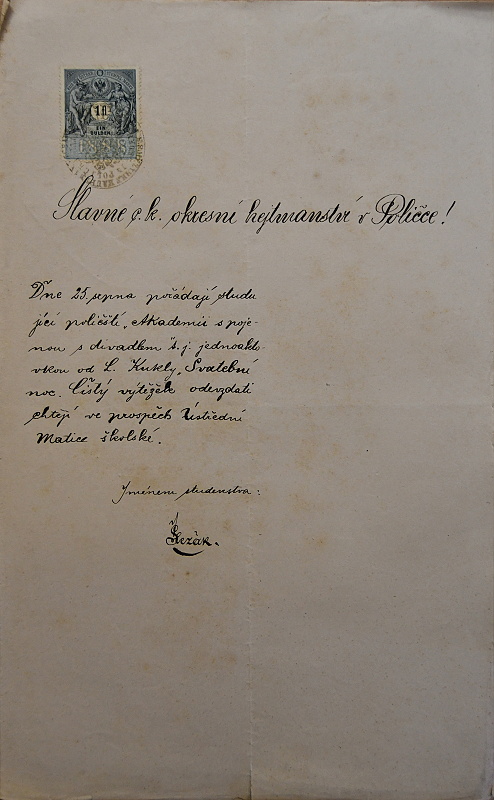 1 fl
EIN
GULDEN
Slavné c. k. okresní hejtmanství v Poličce!
Dne 25. srpna pořádají studu
jící poličští „Akademii spoje-
nou s divadlem t. j. jednoakto
vkou od L. Kukly „Svatební
noc. Čistý výtěžek odevzdati
chtějí ve prospěch Ústřední
Matice školské.
Jménem studenstva: